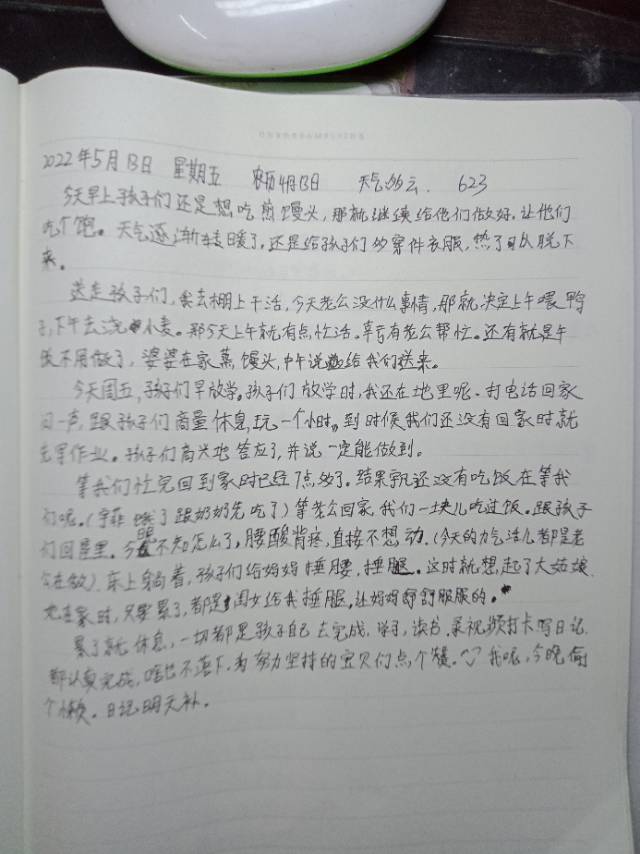 2022年5月13日 星期五 农历4月13日 天气多云. 623
今天早上孩子们还是想吃煎馒头,那就继续给他们做好,让他们
吃个饱。天气逐渐转暖了,还是给孩子们多穿件衣服,热了可以脱下
来。
送走孩子们,我去棚上干活,今天老公没什么事情,那就决定上午喂鸭
子,下午去浇小麦。那今天上午就有点忙活。幸亏有老公帮忙。还有就是午
饭不用做了,婆婆在家蒸馒头,中午说给我们送来。
今天周五,孩子们早放学,孩子们放学时,我还在地里呢。打电话回家
问一声,跟孩子们商量休息,玩一个小时,到时候我们还没有回家时就
先写作业。孩子们高兴地答应了,并说一定能做到。
等我们忙完回到家时已经7点多了。结果还没有吃饭在等我
们呢。(宇菲饿了跟奶奶先吃了)等老公回家,我们一块儿吃过饭。跟孩子
们回屋里。今晚不知怎么了,腰酸背疼,直接不想动.(今天的力气活儿都是老
公在做)床上躺着,孩子们给妈妈捶腰,捶腿。这时就想起了大姑娘
她在家时,只要累了,都是闺女给我捶腿,让妈妈舒舒服服的。
累了就休息,一切都是孩子自己去完成,读书.录视频打卡写日记
都认真完成,啥也不落下.为努力坚持的宝贝们点个赞.我呢,今晚偷
个懒。日记明天补。